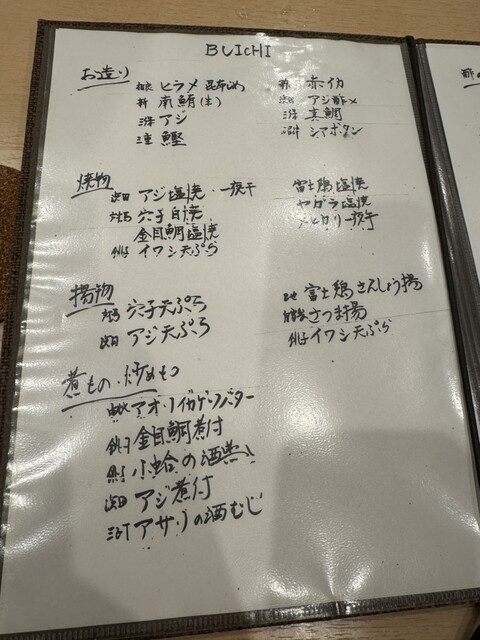 BUICHI
お造り
ヒラメ 昆布〆
南鮪(生)
アジ
鰹
赤イカ
アジ酢〆
真鯛
シマボタン
焼物
浜田 アジ塩焼・一夜干
穴子白焼
金目鯛塩焼
銚子 イワシ天ぷら
富士鶏塩焼
ヤガラ塩焼
メヒカリ一夜干
揚物
穴子天ぷら
浜田 アジ天ぷら
富士鶏さんしょう揚
さつま揚
銚子 イワシ天ぷら
煮もの・炒めもの
アオリイカゲソバター
銚子 金目鯛煮付
小蛤の酒蒸し
浜田 アジ煮付
三河 アサリの酒むし
酢の